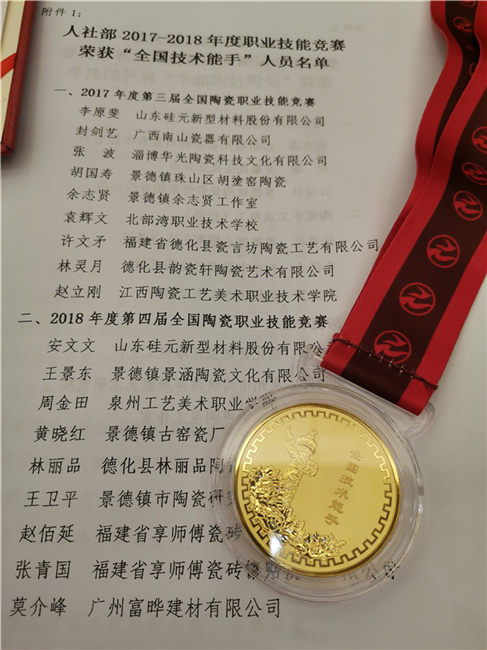 附件1：
人社部2017-2018年度职业技能竞赛
荣获“全国技术能手”人员名单
一、2017年度第三届全国陶瓷职业技能竞赛
李原斐 山东硅元新型材料股份有限公司
封剑艺 广西南山瓷器有限公司
张波 淄博华光陶瓷科技文化有限公司
胡国寿 景德镇珠山区胡塗窑陶瓷
余志贤 景德镇余志贤工作室
袁辉文 北部湾职业技术学校
许文矛 福建省德化县瓷言坊陶瓷工艺有限公司
林灵月 德化县韵瓷轩陶瓷艺术有限公司
赵立刚 江西陶瓷工艺美术职业技术学院
二、2018年度第四届全国陶瓷职业技能竞赛
安文文 山东硅元新型材料股份有限公司
王景东 景德镇景涵陶瓷文化有限公司
周金田 泉州工艺美术职业学院
黄晓红 景德镇古窑瓷厂
林丽品 德化县林丽品陶
王卫平 景德镇市陶瓷研
赵佰延 福建省享师傅瓷砖
张青国 福建省享师傅瓷砖 有限公司
莫介峰 广州富晔建材有限公司
全国技术能手